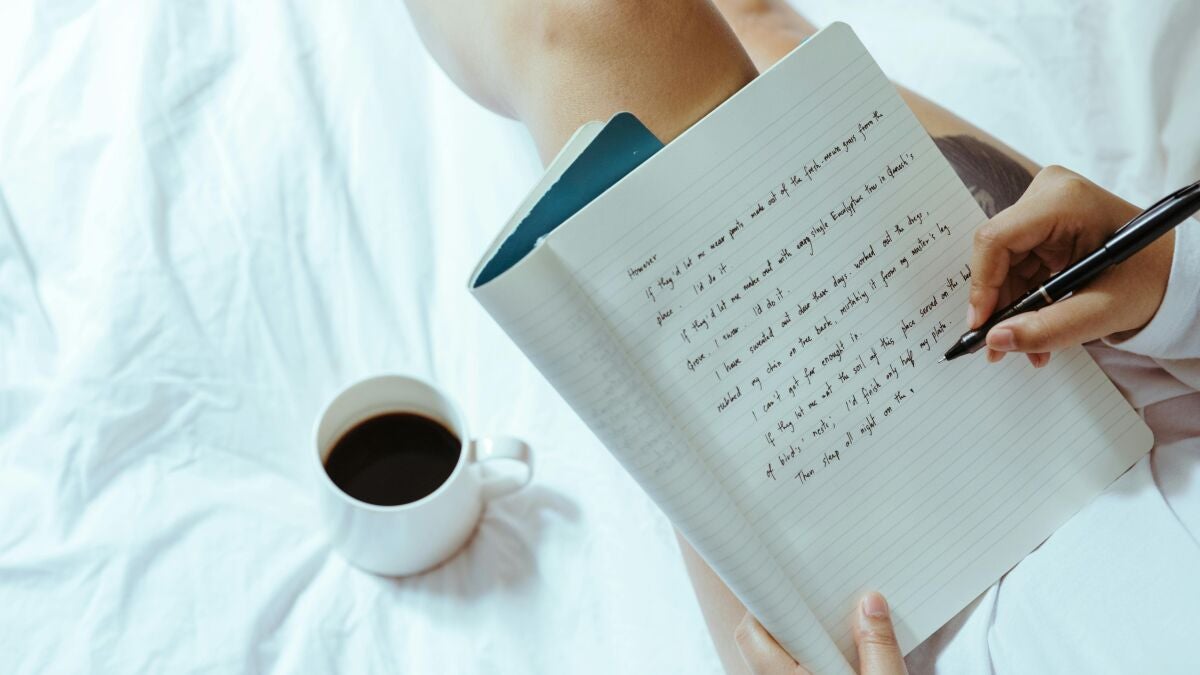 However
If they'd let me wear pants made out of the fresh-mown grass from the
place. I'd do it.
If they'd let me make out with every single Eucalyptus tree in Queech's
Grove. I swear. I'd do it.
I have sweated out dear these days. worked out the dregs,
rubbed my chin on tree bark, mistaking it from my master's leg
I can't got far enough in.
If they let me eat the soil of this place served on the
of birds' nests; I'd finish only half my plate.
Then sleep all night on the